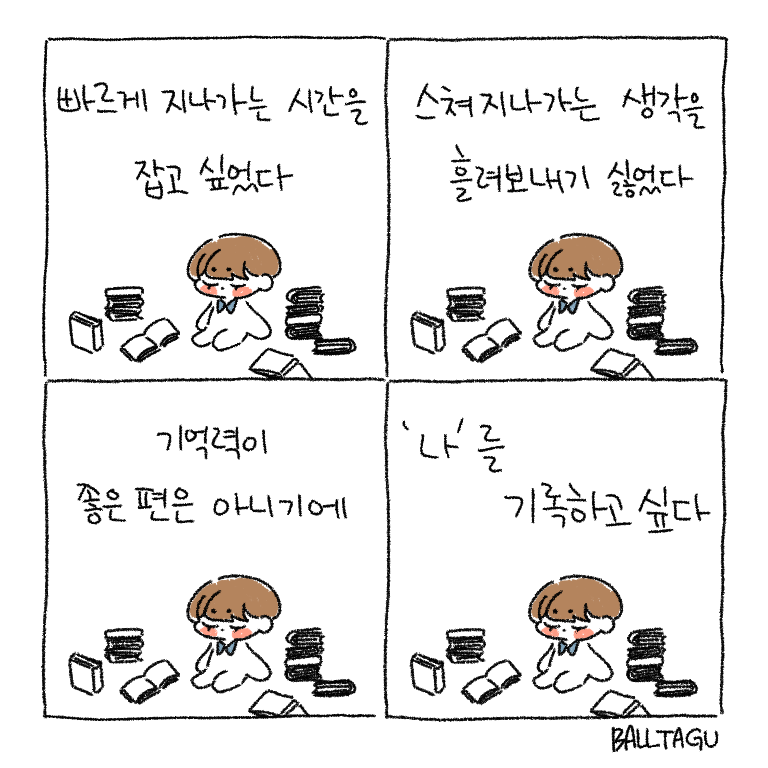 빠르게 지나가는 시간을
잡고 싶었다
스쳐지나가는 생각을
흘려보내기 싫었다
기억력이
좋은 편은 아니기에
'나'를
기록하고 싶다
BALLTAGU